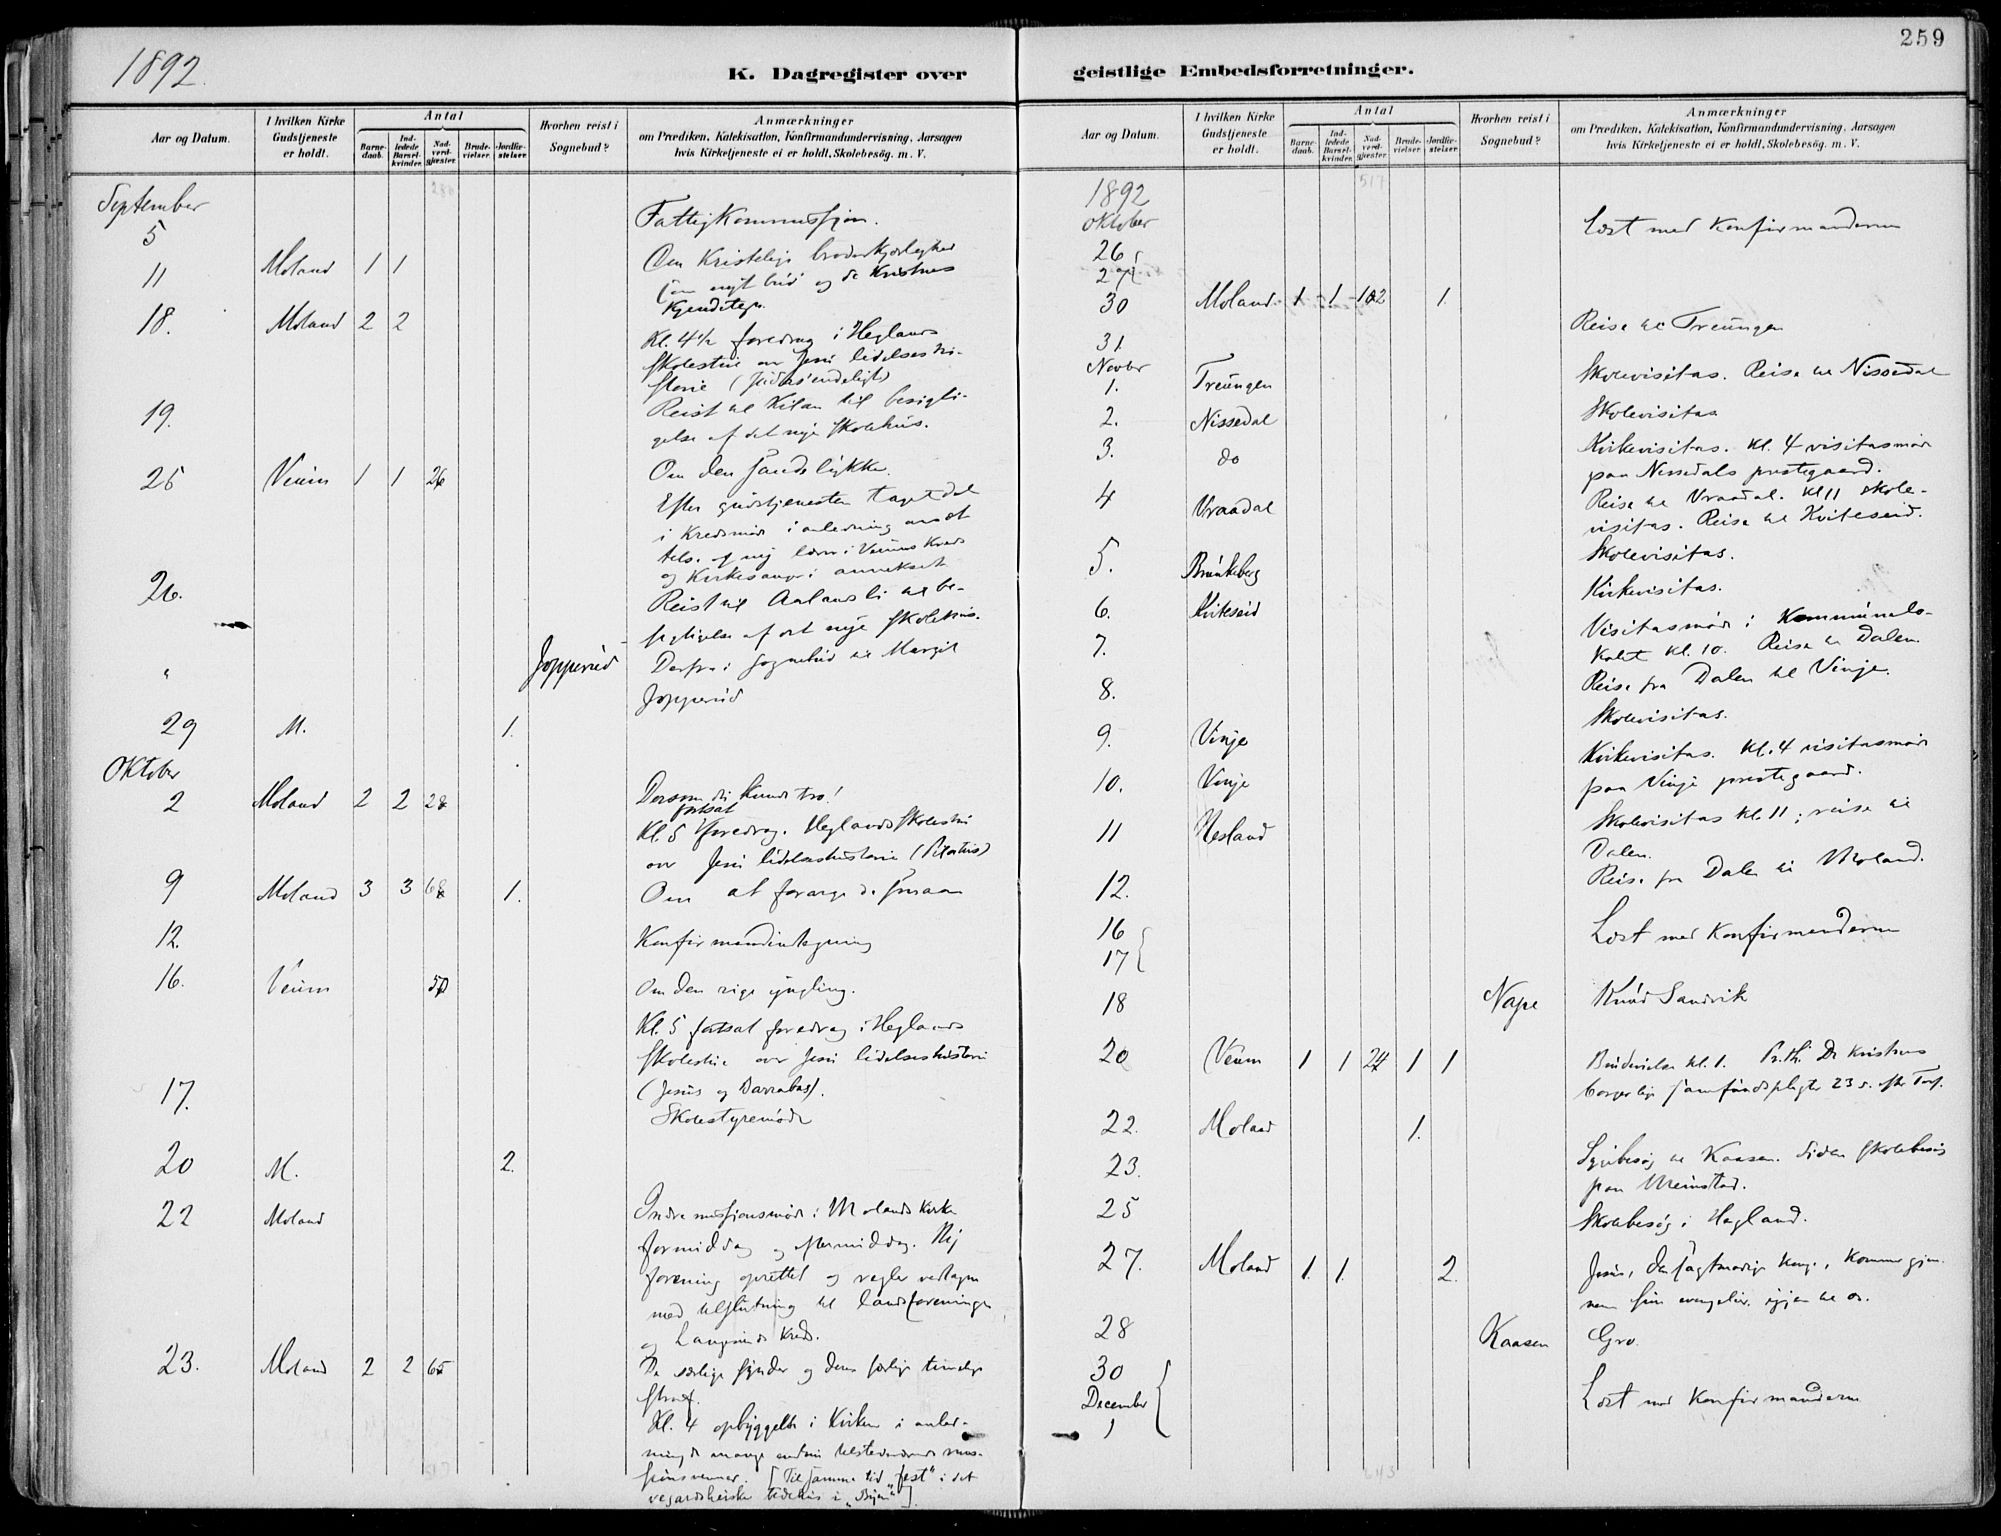 1892.
K. Dagregister over
Aar og Datum.
I hvilken Kirke Gudstjeneste er holdt.
Antal
Barne-daab.
Ind-ledede Barsel-kvinder.
Nad-verd-gjester.
Brude-vielser.
Jordfæ-stelser.
Hvorhen reist i Sognebud?
Anmærkninger
om Prædiken, Katekisation, Konfirmandundervisning, Aarsagen
hvis Kirketjeneste ei er holdt, Skolebesøg. m. V.
September
5 Fattigkommissjon.
11 Moland 1 1 Om Kristelig broderkjærlighed
som nyt bud og de Kristnes
Kjendetegn.
18. Moland 2 2 Kl. 4½ foredrag i Heglands
Skolestue over Jesu lidelseshi-
storie (Judas' endeligt)
19. Reist til Kilan til besigti-
gelse af det nye skolehus.
25 Veum 1 1 26 Om den sande lykke.
Efter gudstjenesten taget del
i Kredsmøde i anledning ansæt
tels. af ny lærer i Veums Kreds
og Kirkesanger i annekset
26. Reist til Aalandsli til be-
sigtigelse af det nye skolehus.
" Jopperud Derfra i sognebud til Margit
Jopperud
29 M. 1.
Oktober
2 Moland 2 2 28 Dersom du kunde tro!
Kl. 5 fortsat foredrag. Heglands skolestue
over Jesu lidelseshistorie (Pilatus)
9 Moland 3 3 68 1. Om at forarge de smaa
12. Konfirmandindtegning
16. Veum 50 Om den rige yngling.
Kl. 5 fortsat foredrag i Heglands
skolestue over Jesu lidelseshistorie
(Jesus og Barrabas).
17. Skolestyremøde
20 M. 2.
22 Moland Indremissjonsmøde i Molands kirke
formiddag og eftermiddag. Ny
forening oprettet og regler vedtagne
med tilslutning til landsforeningen
og Langesunds kreds.
23. Moland 2 2 65 De særlige synder og deres særlige timelige
straf.
Kl. 4 opbyggelse i Kirken i anled-
ning de mange endnu tilstedeværende mis-
sjonsvenner. [Til samme tid "fest" i det
vegardsheiske bedehus i "Byen"].
259
geistlige Embedsforretninger.
Aar og Datum.
I hvilken Kirke Gudstjeneste er holdt.
Antal
Barne-daab.
Ind-ledede Barsel-kvinder.
Nad-verd-gjester.
Brude-vielser.
Jordfæ-stelser.
Hvorhen reist i Sognebud?
Anmærkninger
om Prædiken, Katekisation, Konfirmandundervisning, Aarsagen
hvis Kirketjeneste ei er holdt, Skolebesøg. m. V.
517
1892
Oktober
26 Læst med Konfirmanderne
27
30 Moland 1 1 102 1.
31. Reise til Treungen
Novbr
1. Treungen Skolevisitas. Reise til Nissedal
2. Nissedal Skolevisitas
3. do Kirkevisitas. Kl. 4 visitasmøde
paa Nissedals prestegaard.
4 Vraadal Reise til Vraadal. Kl 11 skole-
visitas. Reise til Hviteseid.
5. Brunkeberg Skolevisitas.
6. Hviteseid Kirkevisitas.
7. Visitasmøde i Kommunelo-
kalet kl. 10. Reise til Dalen.
8. Reise fra Dalen til Vinje.
9. Vinje Skolevisitas.
10. Vinje Kirkevisitas. Kl. 4 visitasmøde
paa Vinje prestegaard.
11 Nesland Skolevisitas kl. 11; reise til
Dalen.
12. Reise fra Dalen til Moland.
16 Læst med Konfirmanderne
17
18 Nape Knud Sandvik
20 Veum 1 1 24 1 1 Brudevielse kl. 1. Pr. th. De kristnes
borgerlige samfundspligter 23 s. efter Tref.
22. Moland 1.
23. Sygebesøg til Kaasen. Siden skolebesøg
paa Meinstad.
25 Skolebesøg i Hegland.
27. Moland 1. 1. 2. Jesus, den sagtmodige konge, kommer gjen-
nem sin evangelie. igjen til os.
28 Kaasen Gro
30 Læst med Konfirmanderne
December
1
643